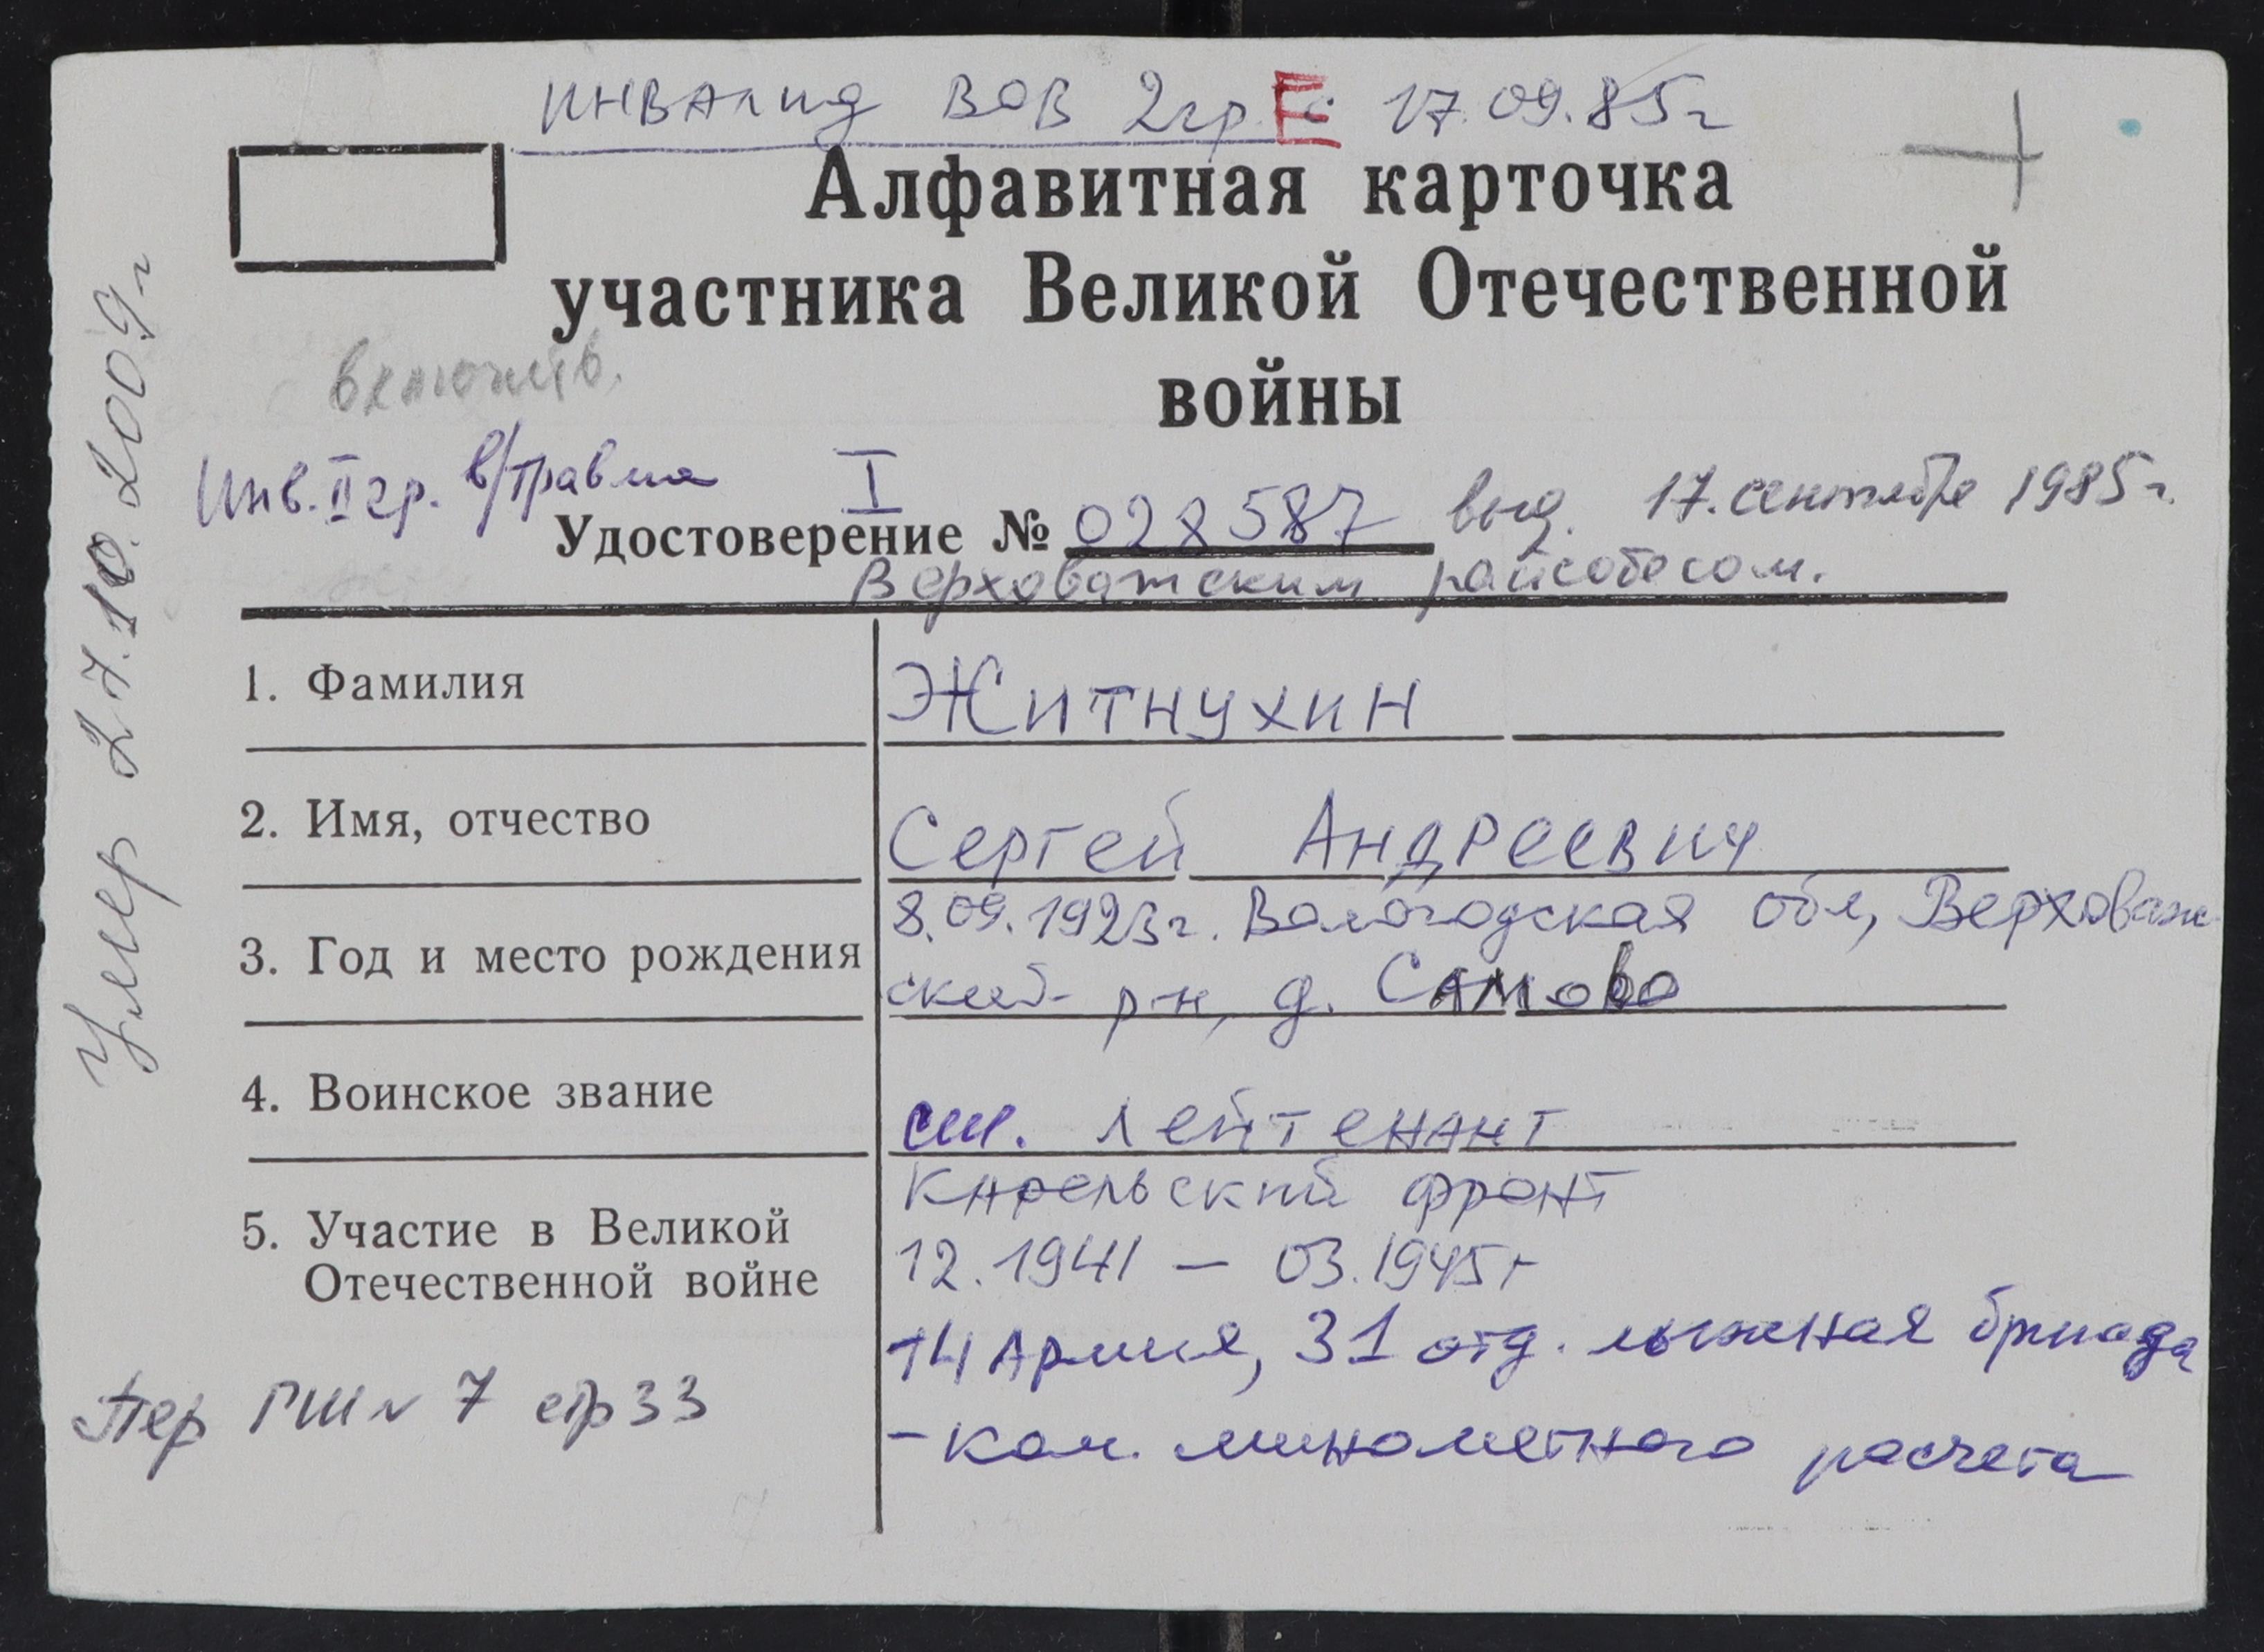 инвалид ВОВ 2гр. Е с 17.09.85г
Алфавитная карточка
участника Великой Отечественной
войны
включить.
Инв. II гр. в/травма
I
Удостоверение № 028587 выд. 17. сентября 1985 г.
Верховажским райсобесом.
Умер 27.10.2009г
1. Фамилия
Житнухин
2. Имя, отчество
Сергей Андреевич
3. Год и место рождения
8.09.1923г. Вологодская обл, Верховаж
ский р-н, д. Самово
4. Воинское звание
ст. лейтенант
5. Участие в Великой
Отечественной войне
Карельский фронт
12.1941 – 03.1945г
14 Армия, 31 отд. лыжная бригада
– ком. минометного расчета
Пер ГШ № 7 стр 33